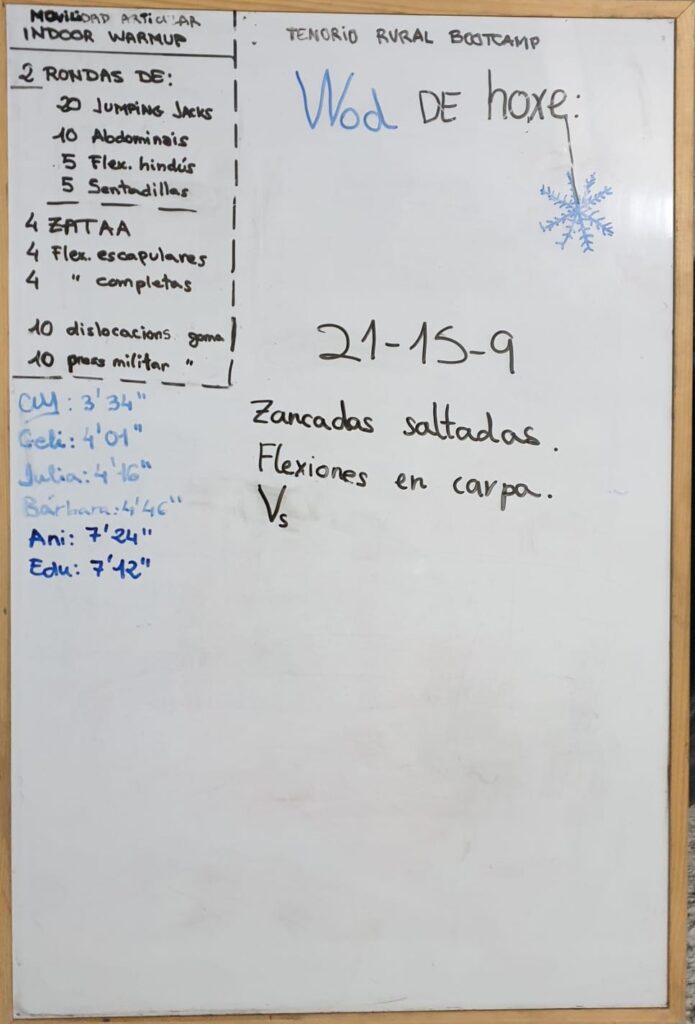 MOVILIDAD ARTICULAR
INDOOR WARMUP
2 RONDAS DE:
20 JUMPING JACKS
10 Abdominais
5 Flex. hindús
5 Sentadillas
4 ZATAA
4 Flex. escapulares
4 " completas
10 dislocacions goma
10 press militar "
CUY: 3'34"
Geli: 4'01"
Julia: 4'16"
Bárbara: 4'46"
Ani: 7'24"
Edu: 7'12"
TENORIO RURAL BOOTCAMP
Wod DE hoxe:
21-15-9
Zancadas saltadas.
Flexiones en carpa.
Vs